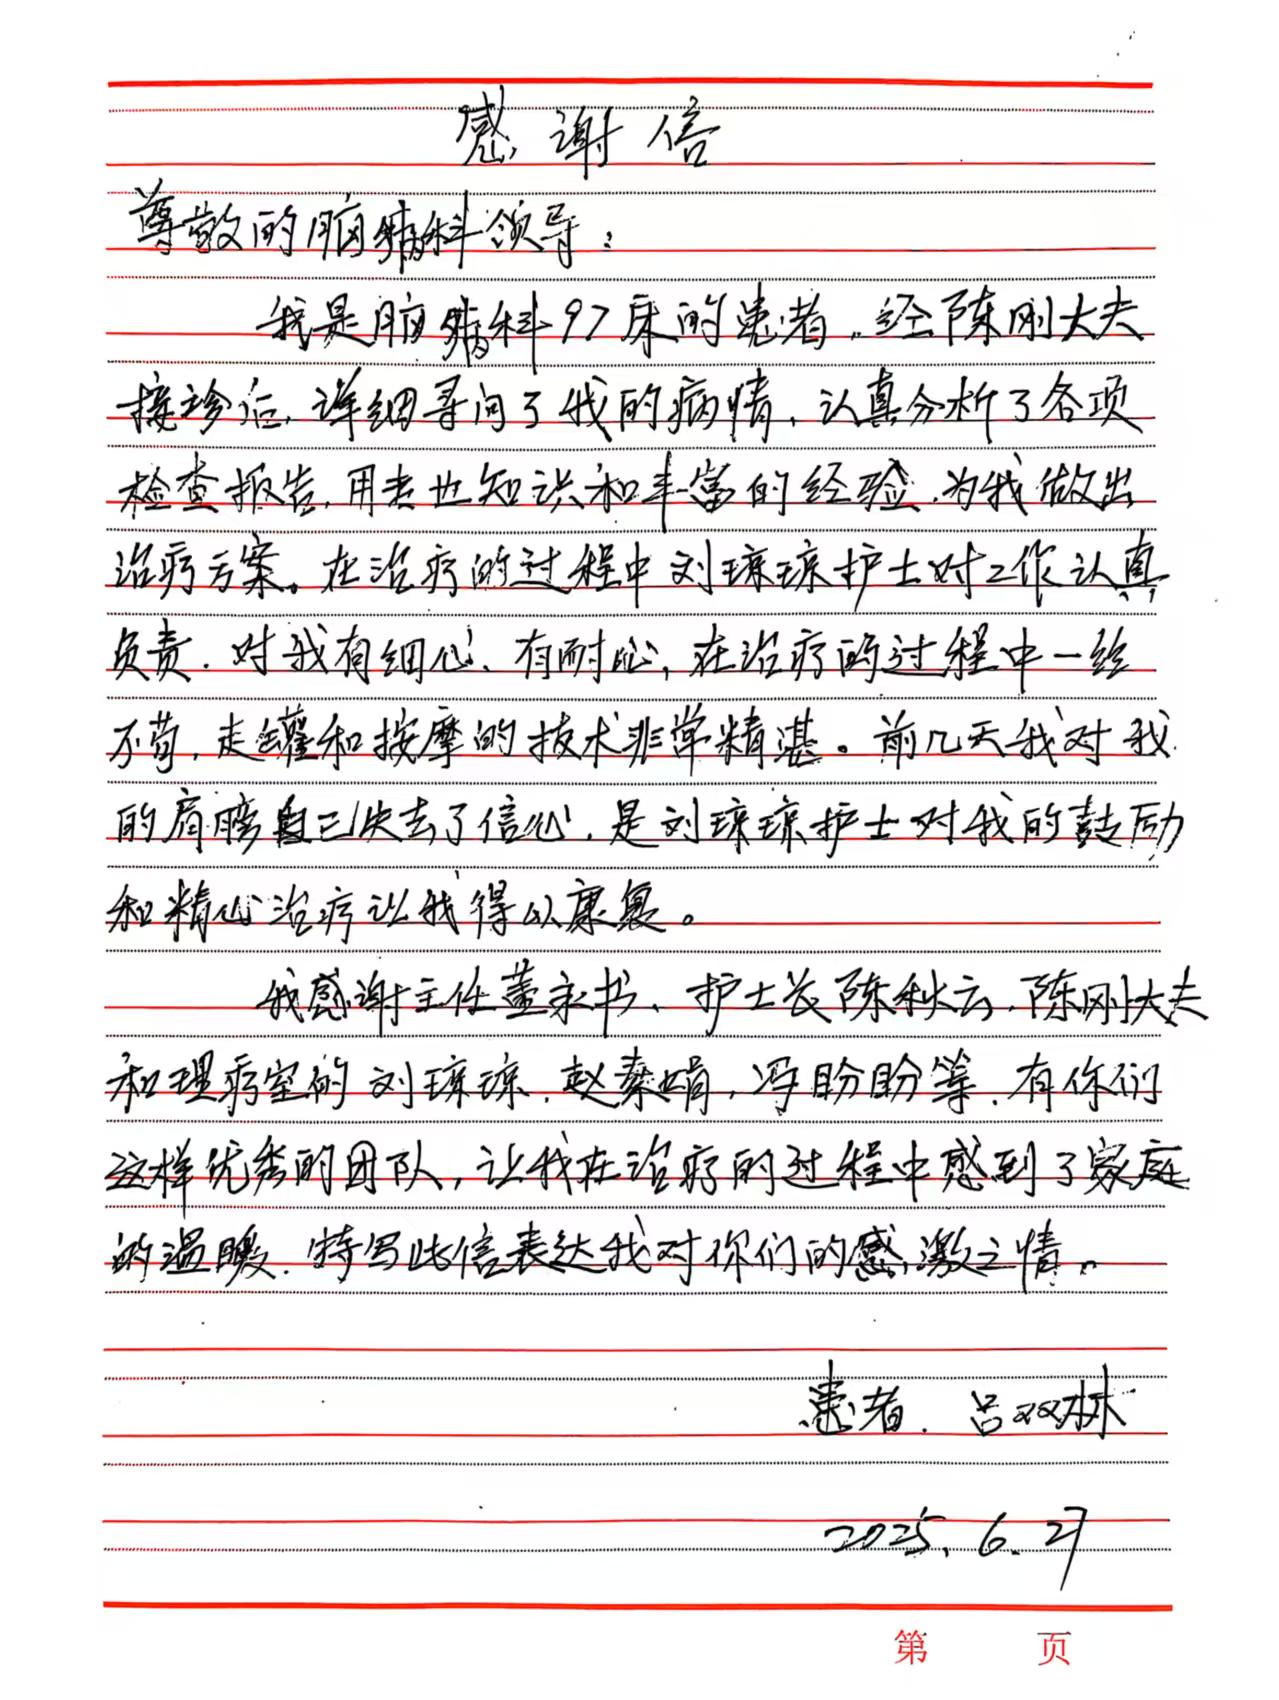 感谢信
尊敬的脑病科领导：
我是脑病科97床的患者，经陈刚大夫
接诊后，详细寻问了我的病情，认真分析了各项
检查报告，用专业知识和丰富的经验，为我做出
治疗方案。在治疗的过程中刘琼琼护士对工作认真
负责，对我有细心、有耐心，在治疗的过程中一丝
不苟，走罐和按摩的技术非常精湛。前几天我对我
的肩膀自己失去了信心，是刘琼琼护士对我的鼓励
和精心治疗让我得以康复。
我感谢主任董永书、护士长陈秋云，陈刚大夫
和理疗室的刘琼琼，赵桑娟，冯盼盼等，有你们
这样优秀的团队，让我在治疗的过程中感到了家庭
的温暖，特写此信表达我对你们的感激之情。
患者．吕双林
2025.6.27
第 页